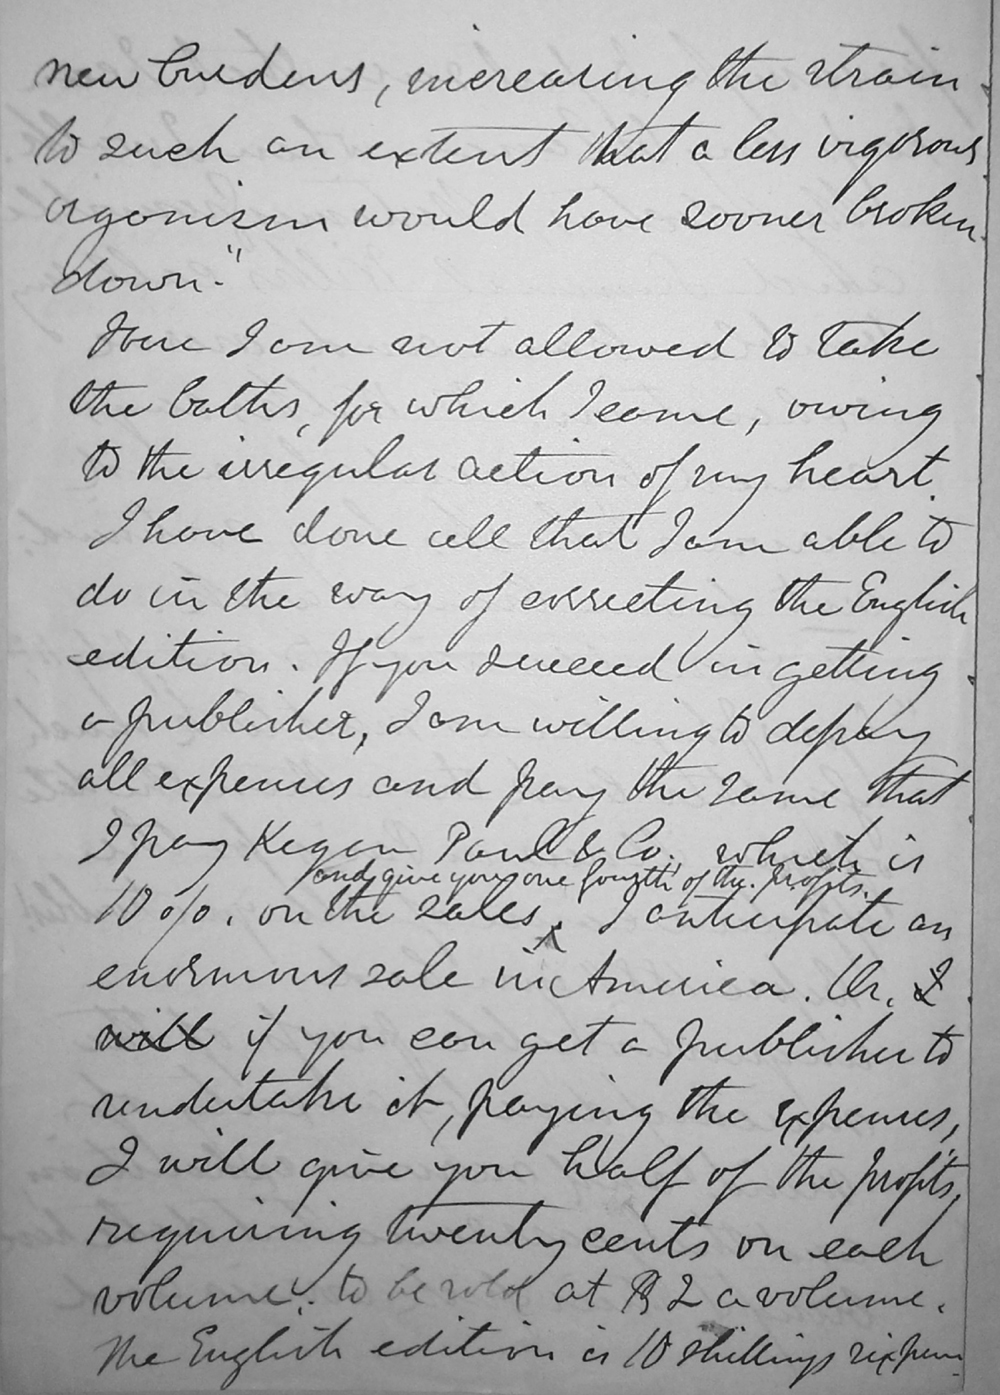 new burdens, increasing the strain
to such an extent that a less vigorous
organism would have sooner broken
down."
Here I am not allowed to take
the baths, for which I came, owing
to the irregular action of my heart.
I have done all that I am able to
do in the way of correcting the English
edition. If you succeed in getting
a publisher, I am willing to defray
all expenses and pay the same that
I pay Kegan Paul & Co., which is
and give you one fourth of the profits.
10 o/o. on the sales. I anticipate an
enormous sale in America. Or, I
will if you can get a publisher to
undertake it, paying the expenses,
I will give you half of the profits,
requiring twenty cents on each
volume. to be sold at $2 a volume.
The English edition is 10 shillings sixpence